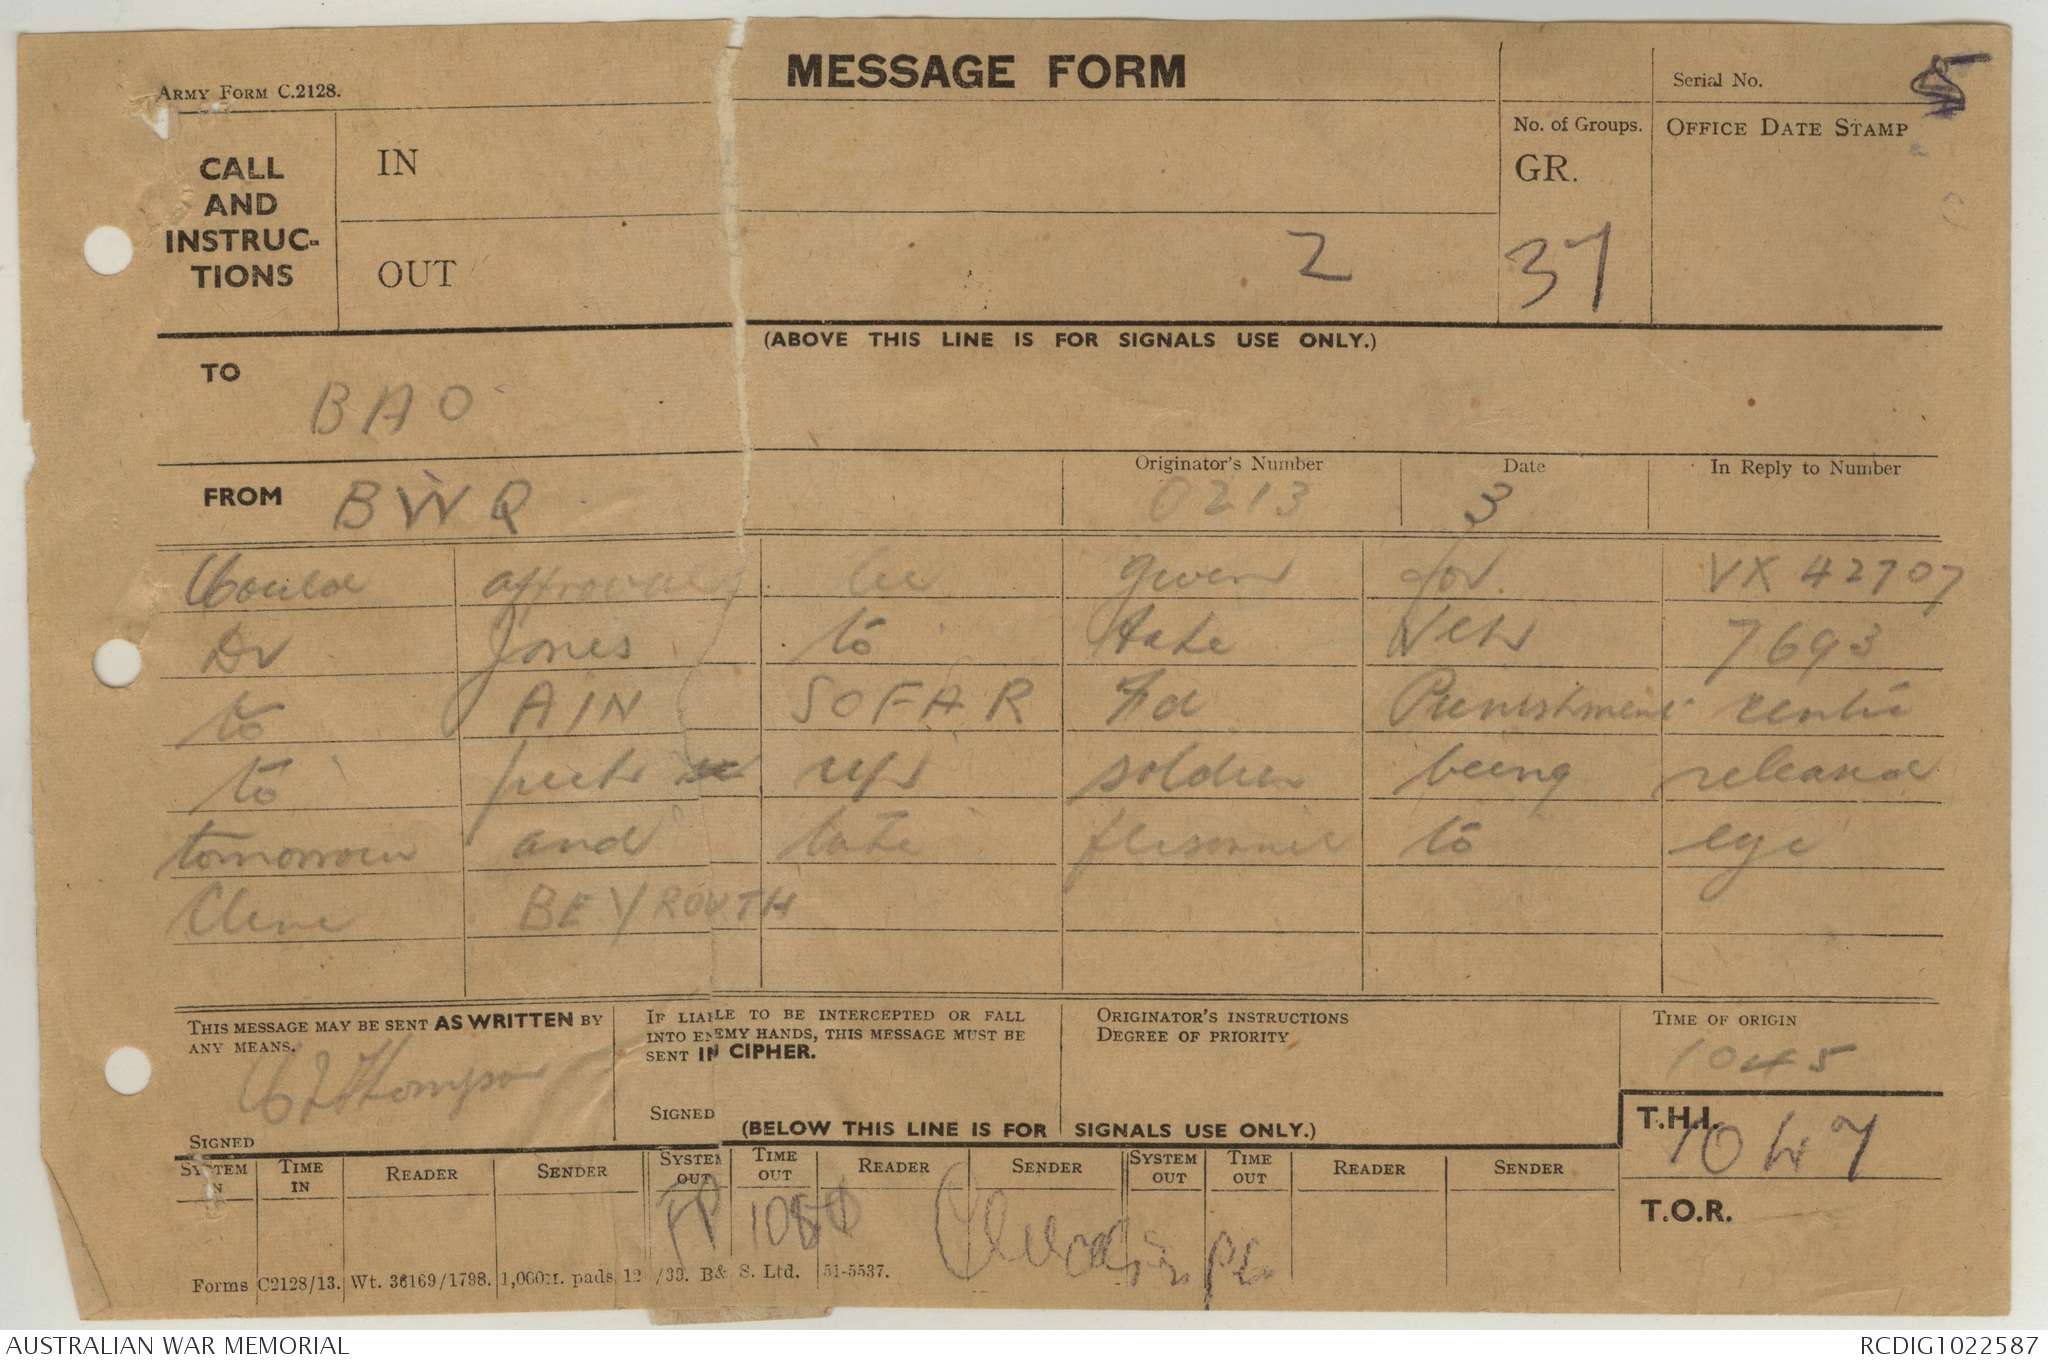 MESSAGE FORM
ARMY FORM C.2128.
Serial No. 5
CALL AND INSTRUC-TIONS
IN
No. of Groups.
OFFICE DATE STAMP
GR.
OUT 2 37
(ABOVE THIS LINE IS FOR SIGNALS USE ONLY.)
TO
BAO
FROM BWQ
Originator's Number 0213
Date 3
In Reply to Number
Could approval be given for VX 42707
Dvr Jones to take Veh 7693
to AIN SOFAR Fd Punishment centre
to pick up soldier being released
tomorrow and take personnel to eye
Clinic BEYROUTH
THIS MESSAGE MAY BE SENT AS WRITTEN BY
ANY MEANS.
Thompson
SIGNED
IF LIABLE TO BE INTERCEPTED OR FALL
INTO ENEMY HANDS, THIS MESSAGE MUST BE
SENT IN CIPHER.
SIGNED
ORIGINATOR'S INSTRUCTIONS
DEGREE OF PRIORITY
TIME OF ORIGIN
1045
(BELOW THIS LINE IS FOR SIGNALS USE ONLY.)
T.H.I.
1047
SYSTEM IN TIME IN READER SENDER SYSTEM OUT TIME OUT READER SENDER SYSTEM OUT TIME OUT READER SENDER
T.O.R.
Forms C2128/13. Wt. 36169/1798. 1,000M. pads 12/39. B& S. Ltd. 51-5537.
AUSTRALIAN WAR MEMORIAL
RCDIG1022587